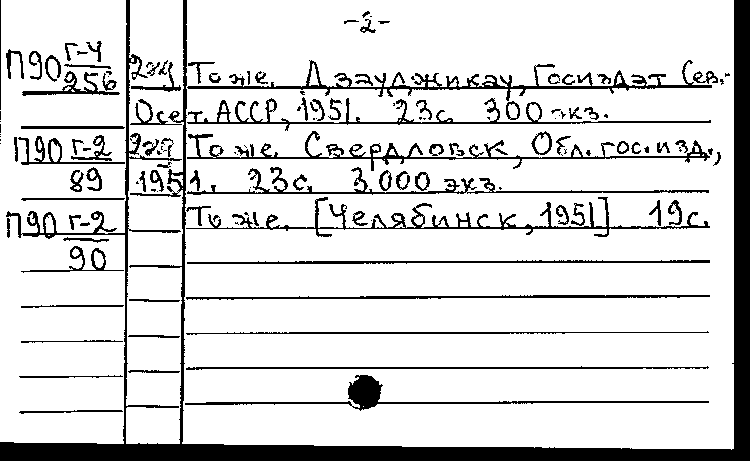 -2-
П90 Г-4 2экз То же. Дзауджикау, Госиздат Сев.-
256
Осет. АССР, 1951. 23с. 300 экз.
П90 Г-2 2экз То же. Свердловск, Обл. гос. изд.,
89 1951. 23с. 3.000 экз.
П90 Г-2 То же. [Челябинск, 1951] 19с.
90